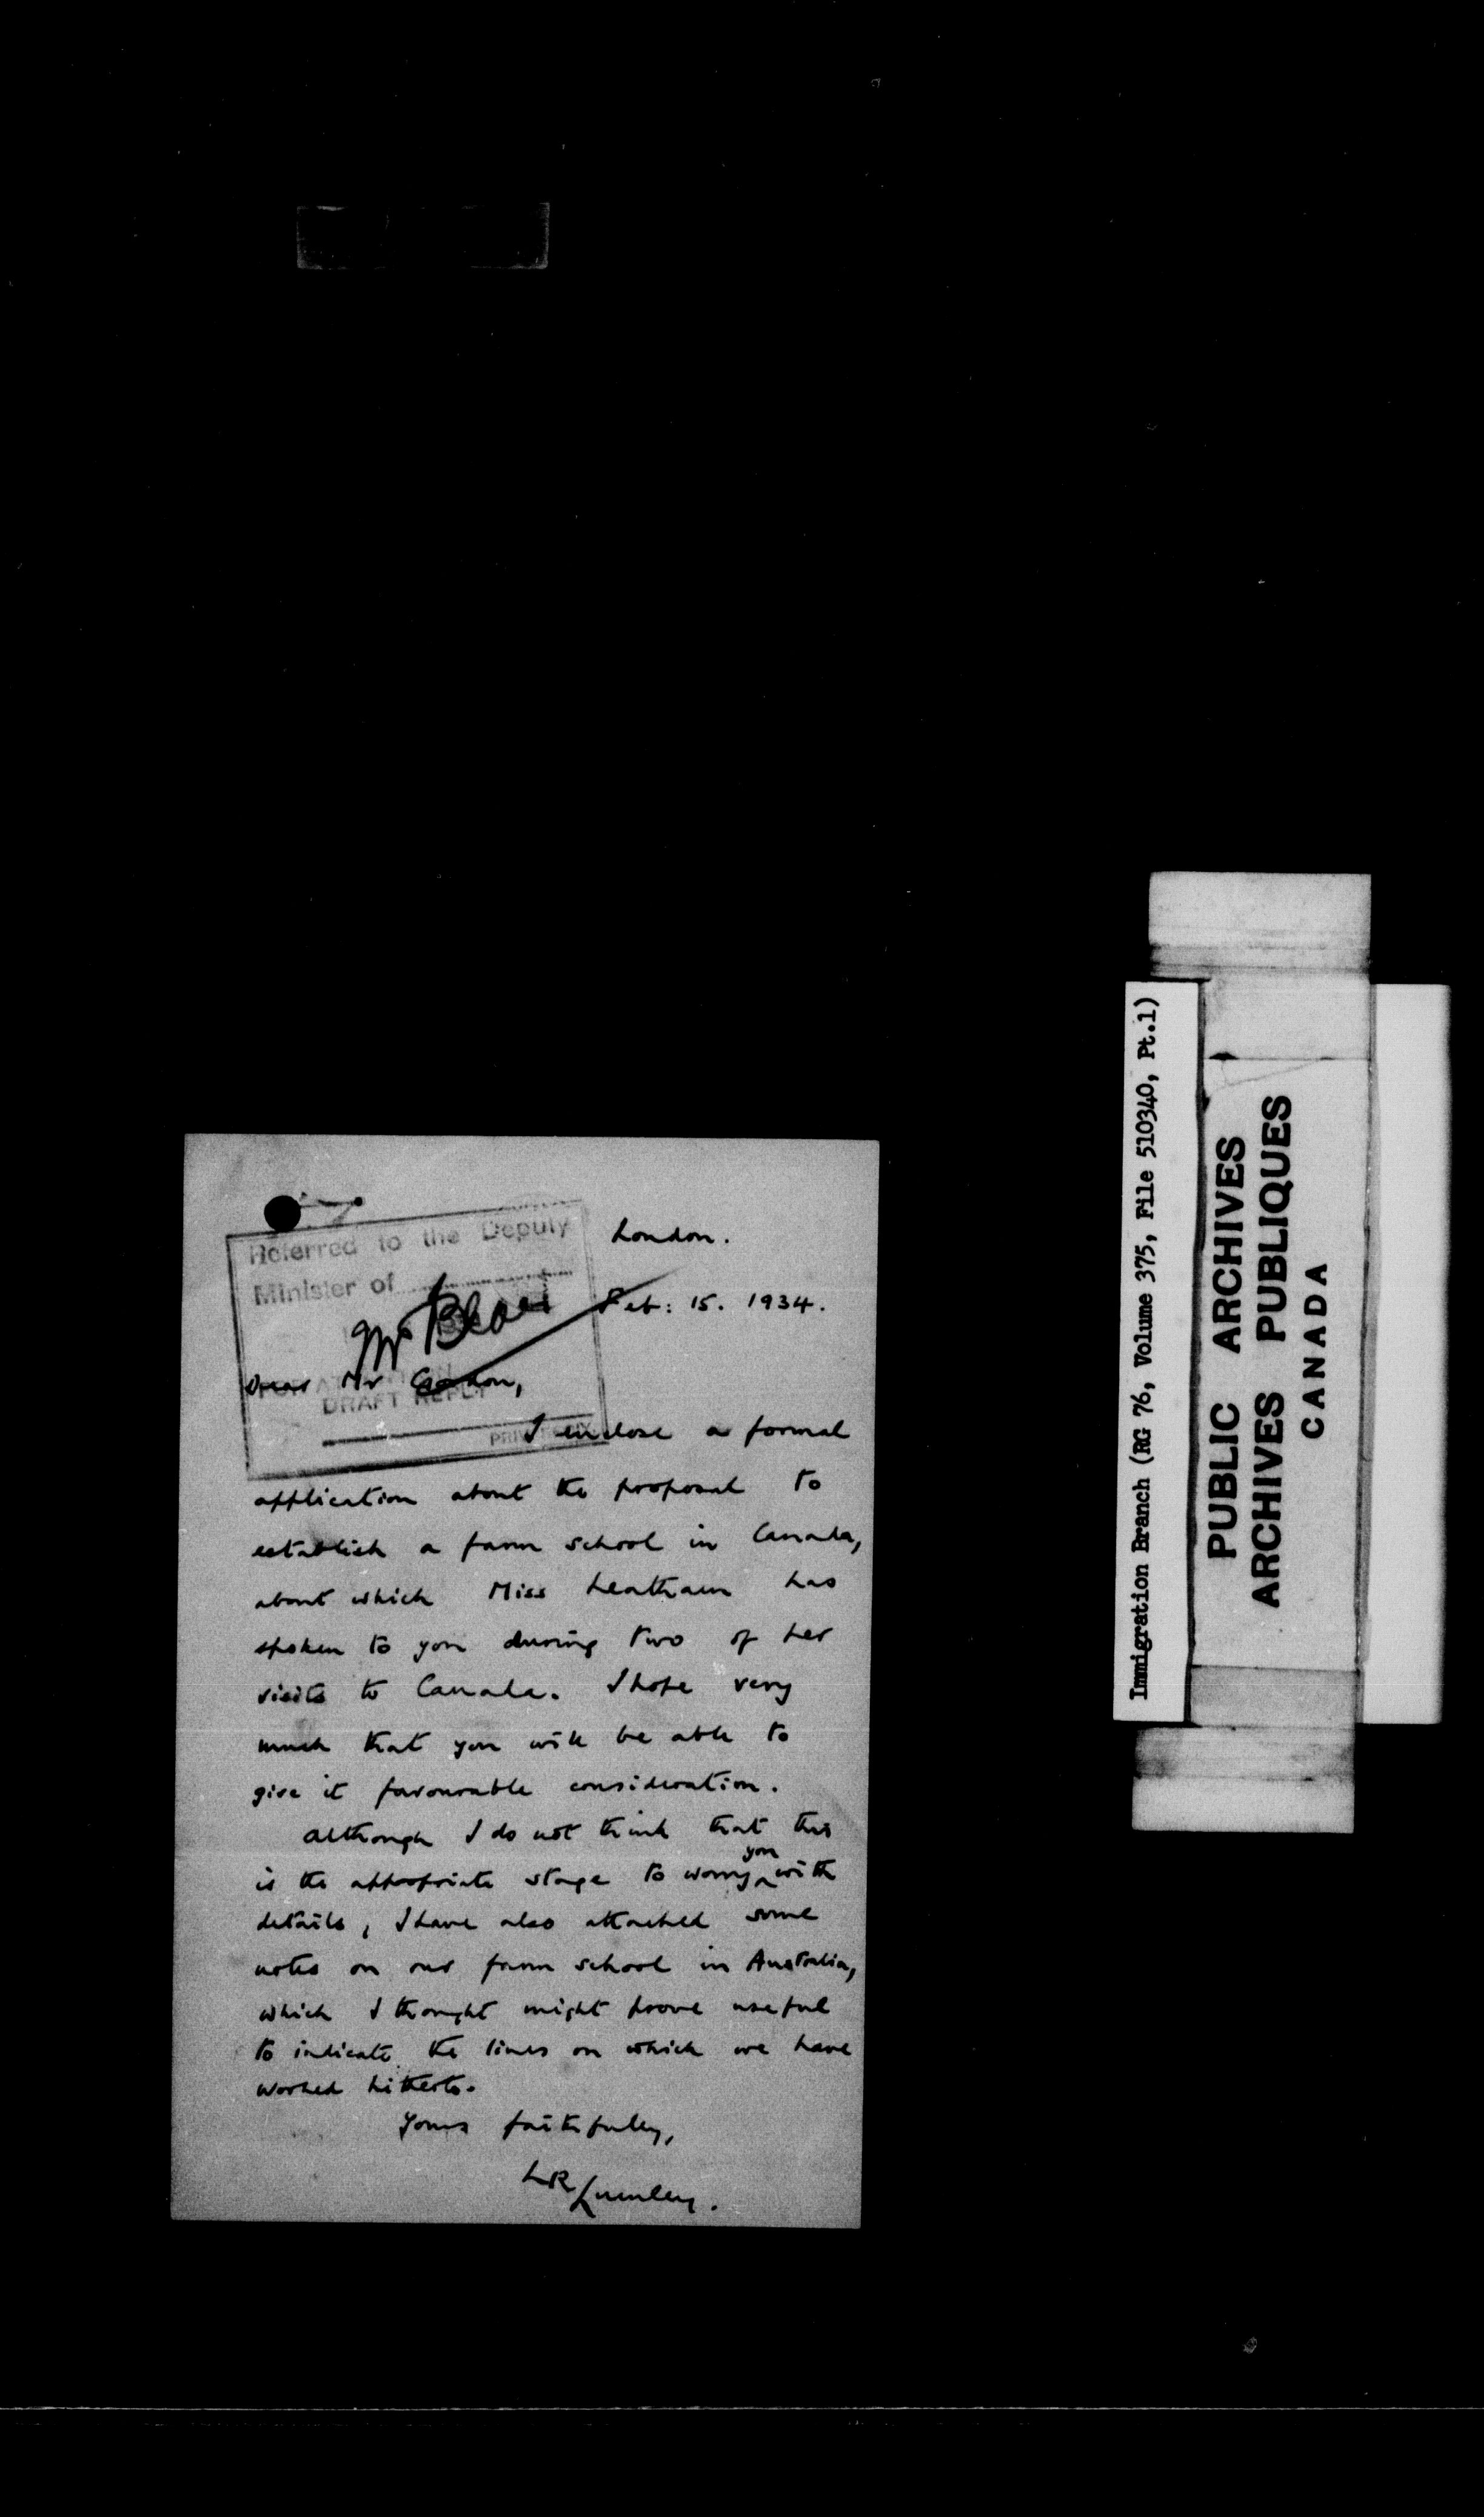 Referred to the Deputy
Minister of
Mr Blair
London.
Feb: 15. 1934.
Dear Mr Gordon,
DRAFT REPLY
I enclose a formal
application about the proposal to
establish a farm school in Canada,
about which Miss Leatham has
spoken to you during two of her
visits to Canada. I hope very
much that you will be able to
give it favourable consideration.
Although I do not think that this
is the appropriate stage to worry you with
details, I have also attached some
notes on our farm school in Australia,
which I thought might prove useful
to indicate the lines on which we have
worked hitherto.
Yours faithfully,
LR Lumley.
Immigration Branch (RG 76, Volume 375, File 510340, Pt.1)
PUBLIC ARCHIVES
ARCHIVES PUBLIQUES
CANADA